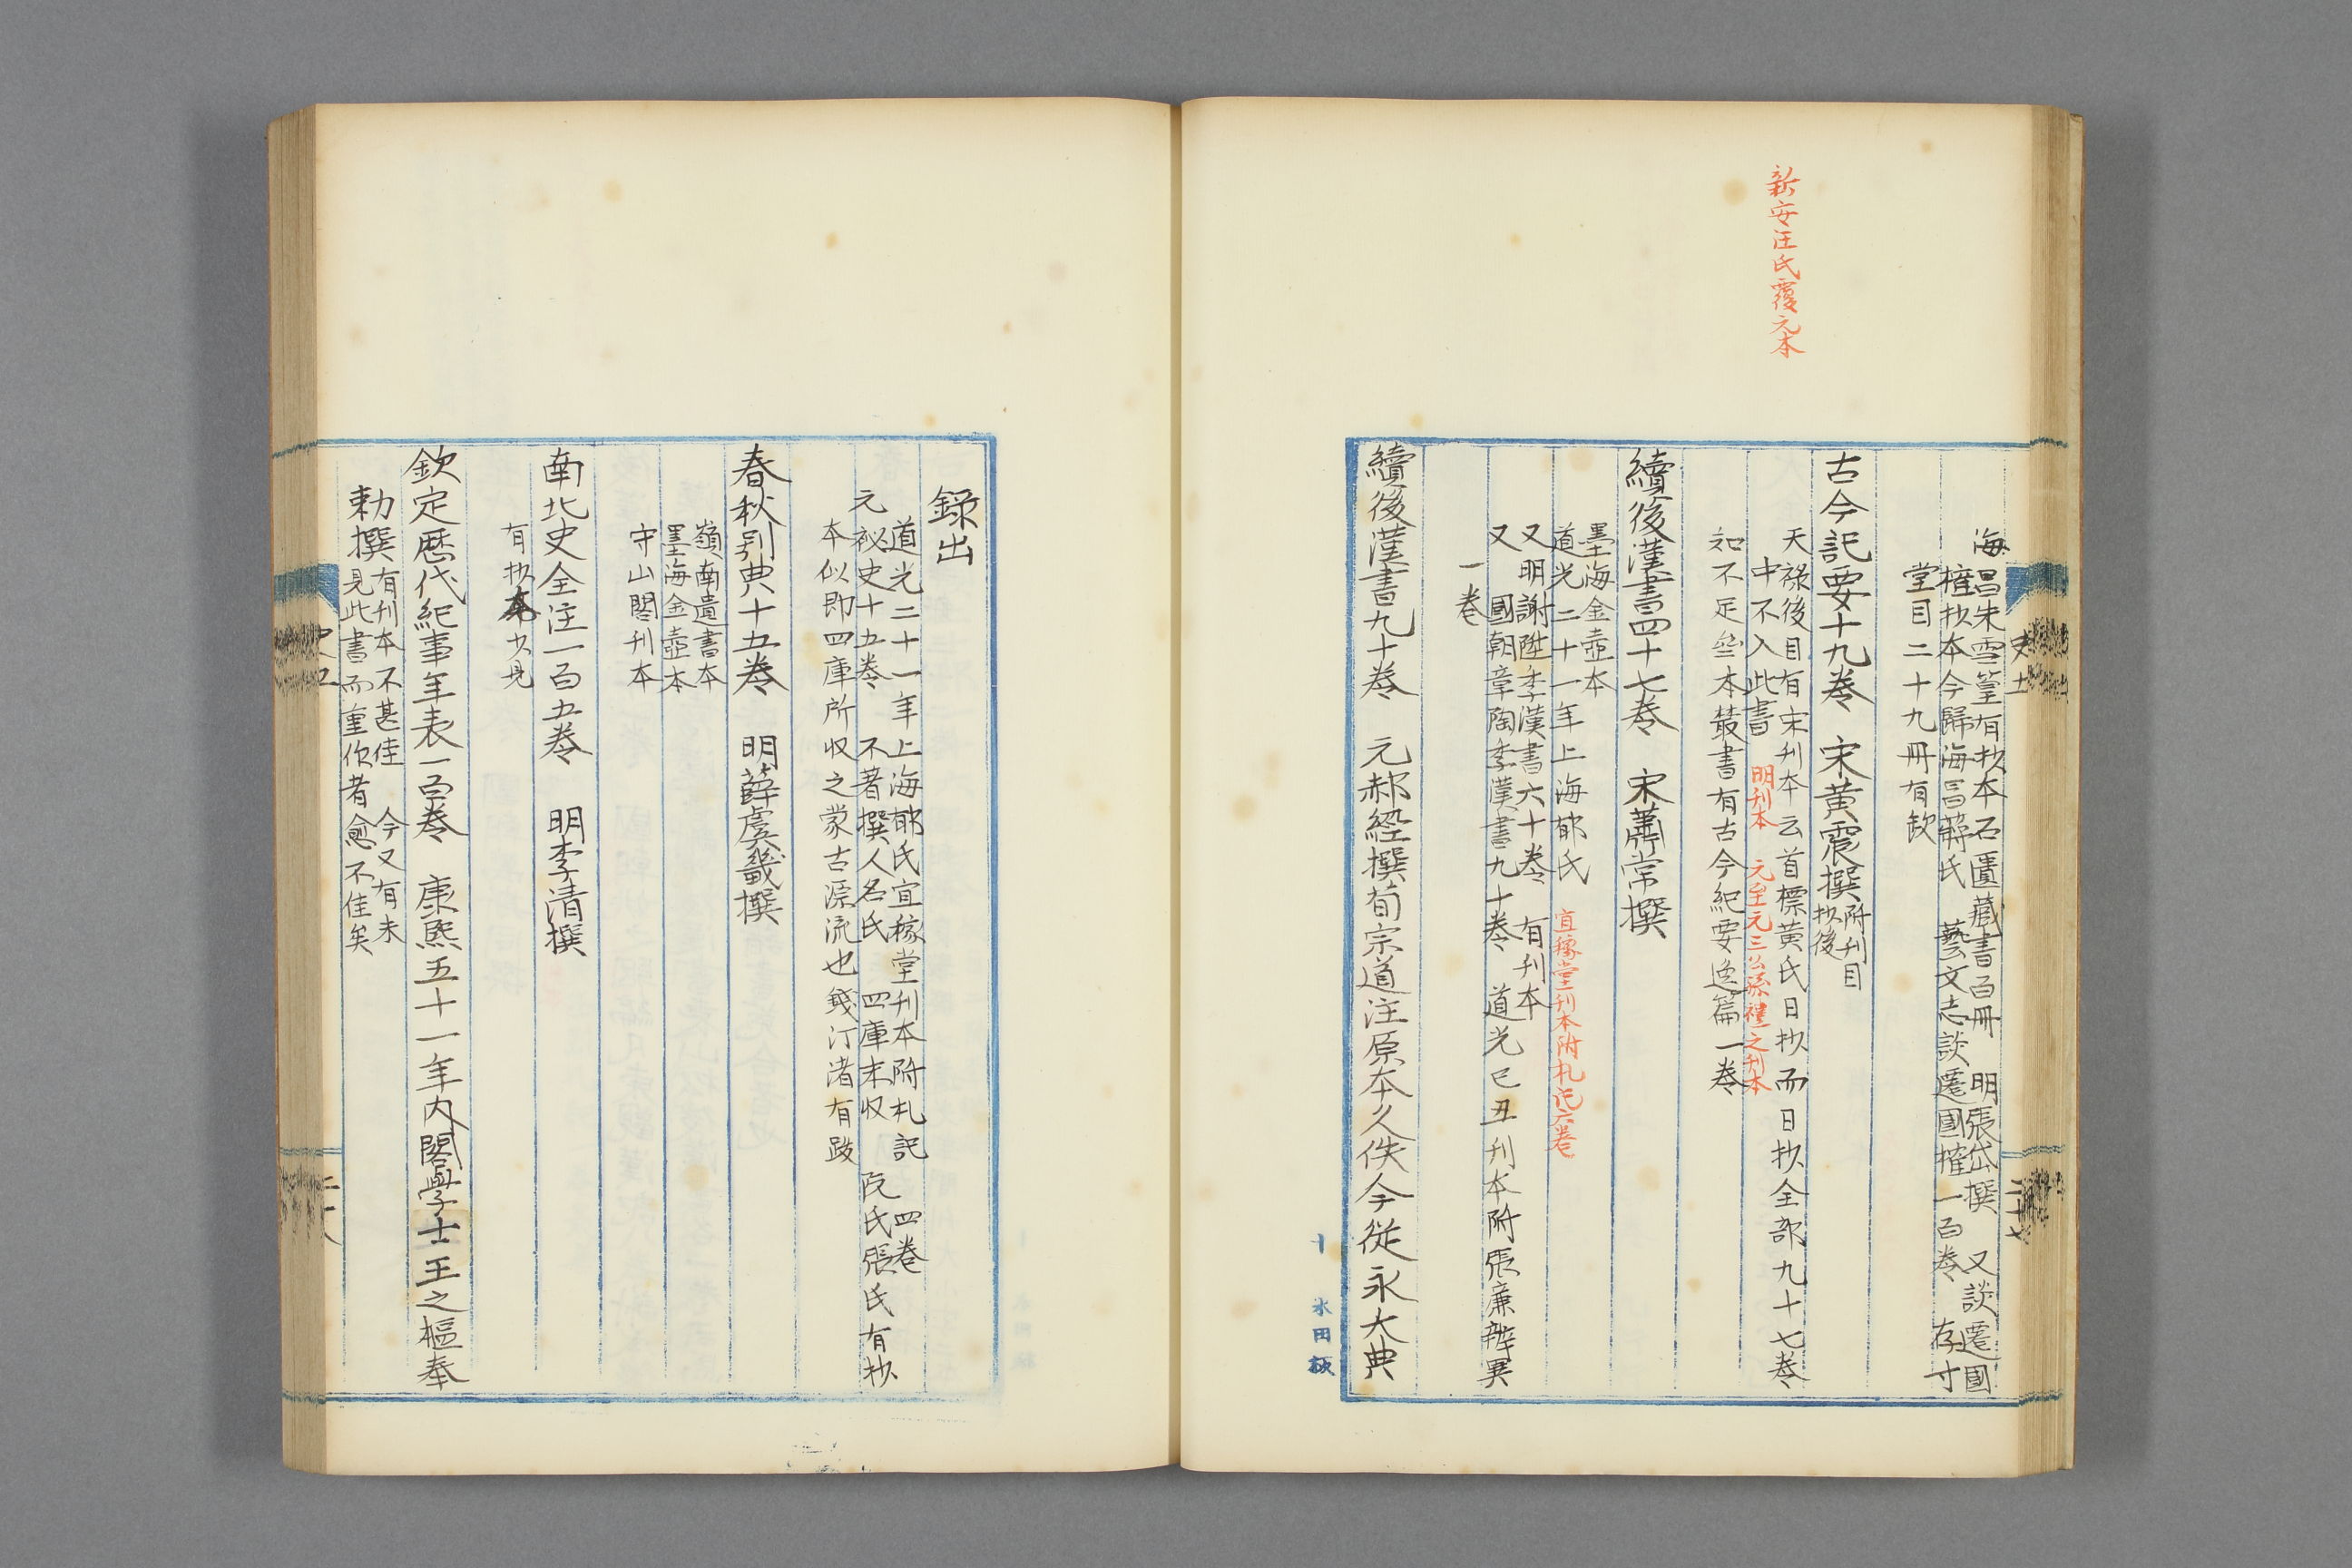 新安汪氏覆元本
海昌朱雪篁有抄本石匱藏書百冊　明張岱撰　又談遷國
榷抄本今歸海昌蔣氏　藝文志談遷國榷一百卷　存寸
堂目二十九冊有欽
古今記要十九卷　宋黃震撰附刊目抄後
天祿後目有宋刊本云首標黃氏日抄而日抄全部九十七卷
中不入此書　明刊本　元至元三公孫禮之刊本
知不足坐本叢書有古今紀要逸篇一卷
續後漢書四十七卷　宋蕭常撰
墨海金壺本
道光二十一年上海郁氏　宜稼堂刊本附札記六卷
又明謝陞季漢書六十卷　有刊本
又　國朝章陶季漢書九十卷　道光己丑刊本附張廉辨異
一卷
續後漢書九十卷　元郝經撰荀宗道注原本久佚今從永大典
錄出
道光二十一年上海郁氏宜稼堂刊本附札記　四卷
元祕史十五卷　不著撰人名氏　四庫未收　阮氏張氏有抄
本似即四庫所收之蒙古源流也錢汀渚有跋
春秋別典十五卷　明薛虞畿撰
嶺南遺書本
墨海金壺本
守山閣刊本
南北史全注一百五卷　明李清撰
有抄本少見
欽定歷代紀事年表一百卷　康熙五十一年內閣學士王之樞奉
勅撰有刊本不甚佳　今又有未
見此書而重作者愈不佳矣
氷田板